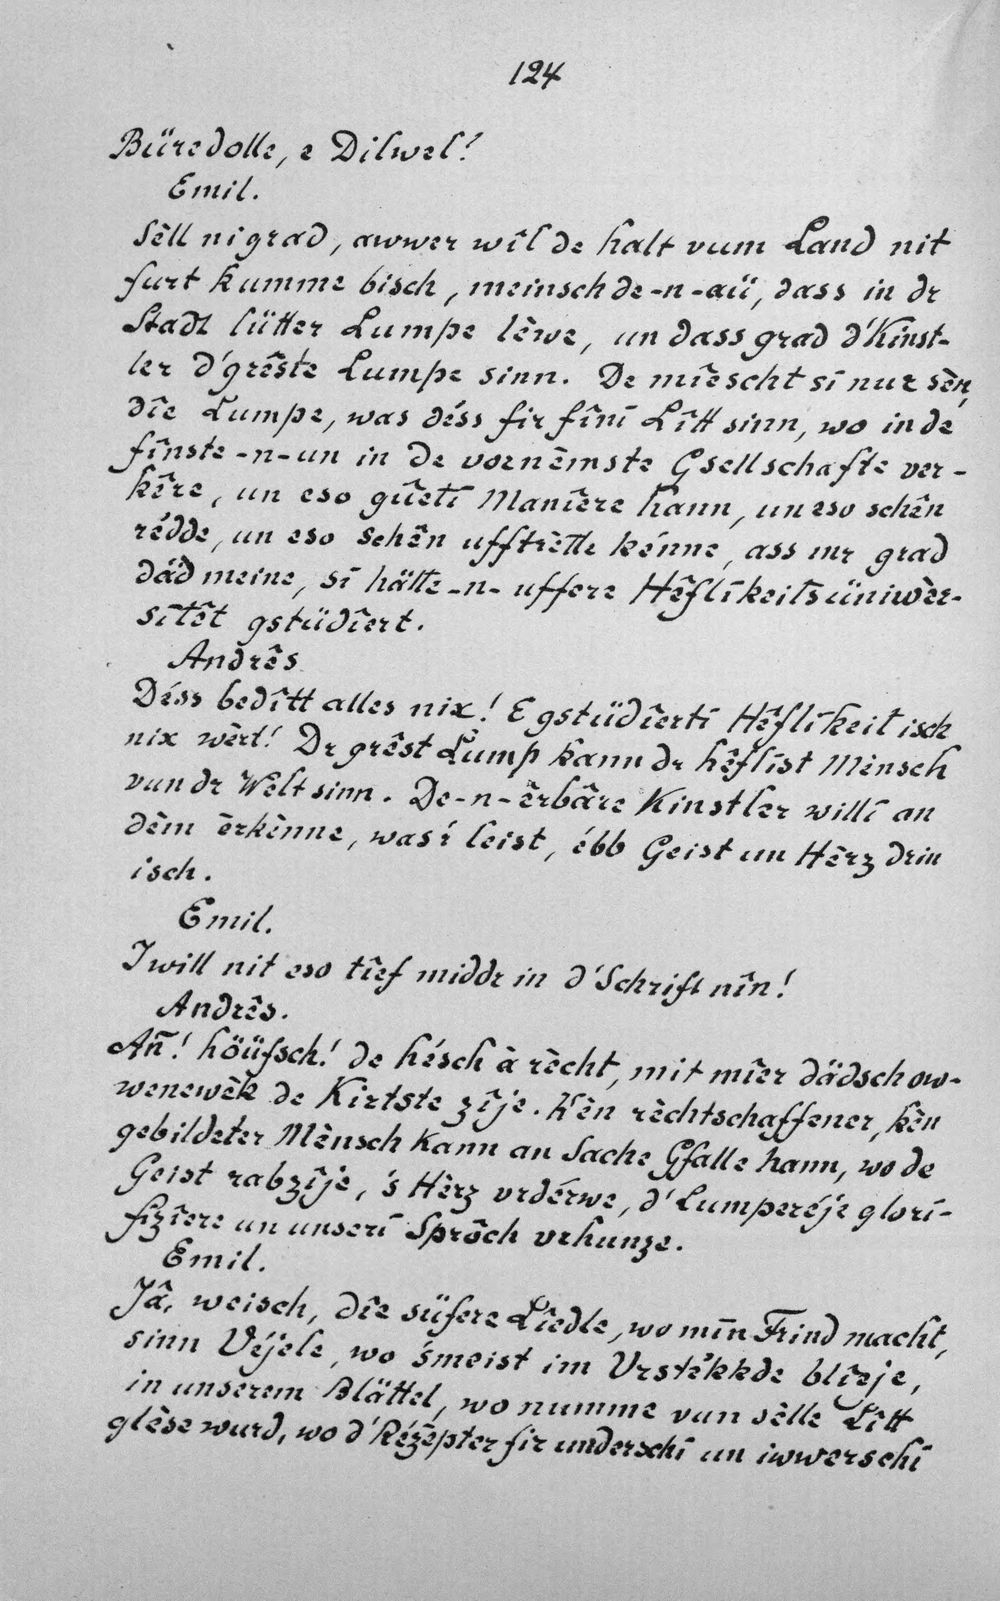 124
Büredolle, e Dilwel!
Emil.
Sèll nigrad, awwer wîl de halt vum Land nit
furt kumme bisch, meinsch de-n-aü, dass in dr
Stadt lütter Lumpe lèwe, un dass grad d'Kinst-
ler d'grêste Lumpe sinn. De mîescht sî nur sèn,
dîe Lumpe, was déss fir fînî Lîtt sinn, wo in de
fînste-n-un in de vornèmste Gsellschafte ver-
kêre, un eso gûetî Manîere hann, un eso schên
rédde, un eso schên ufftrètte kénne, ass mr grad
däd meine, sî hätte-n-uffere Hêflîkeitsüniwèr-
sîtêt gstüdîert.
Andrês
Déss bedîtt alles nix! E gstüdîertî Hêflîkeit isch
nix wèrt! Dr grêst Lump kann dr hêflîst Mènsch
vun dr Welt sinn. De-n-èrbâre Kinstler willî an
dèm èrkènne, was'r leist, ébb Geist un Hèrz drin
isch.
Emil.
I will nit eso tîef middr in d'Schrift nîn!
Andrês.
Añ! höüfsch! de hésch à rècht, mit mîer dädsch ow-
wenewèk de Kirtste zîje. Kèn rèchtschaffener, kèn
gebildeter Mènsch kann an Sache Gfalle hann, wo de
Geist rabzîje, 's Hèrz vrdérwe, d'Lumperéje glorî-
fizîere un unserî Sprôch vrhunze.
Emil.
Jâ, weisch, dîe süfere Lîedle, wo mîn Frind macht,
sinn Véjele, wo 'smeist im Vrstékkde blîeje,
in unserem Blättel, wo numme vun sèlle Lîtt
glèse wurd, wo d'Rézèpter fir underschî un iwwerschî